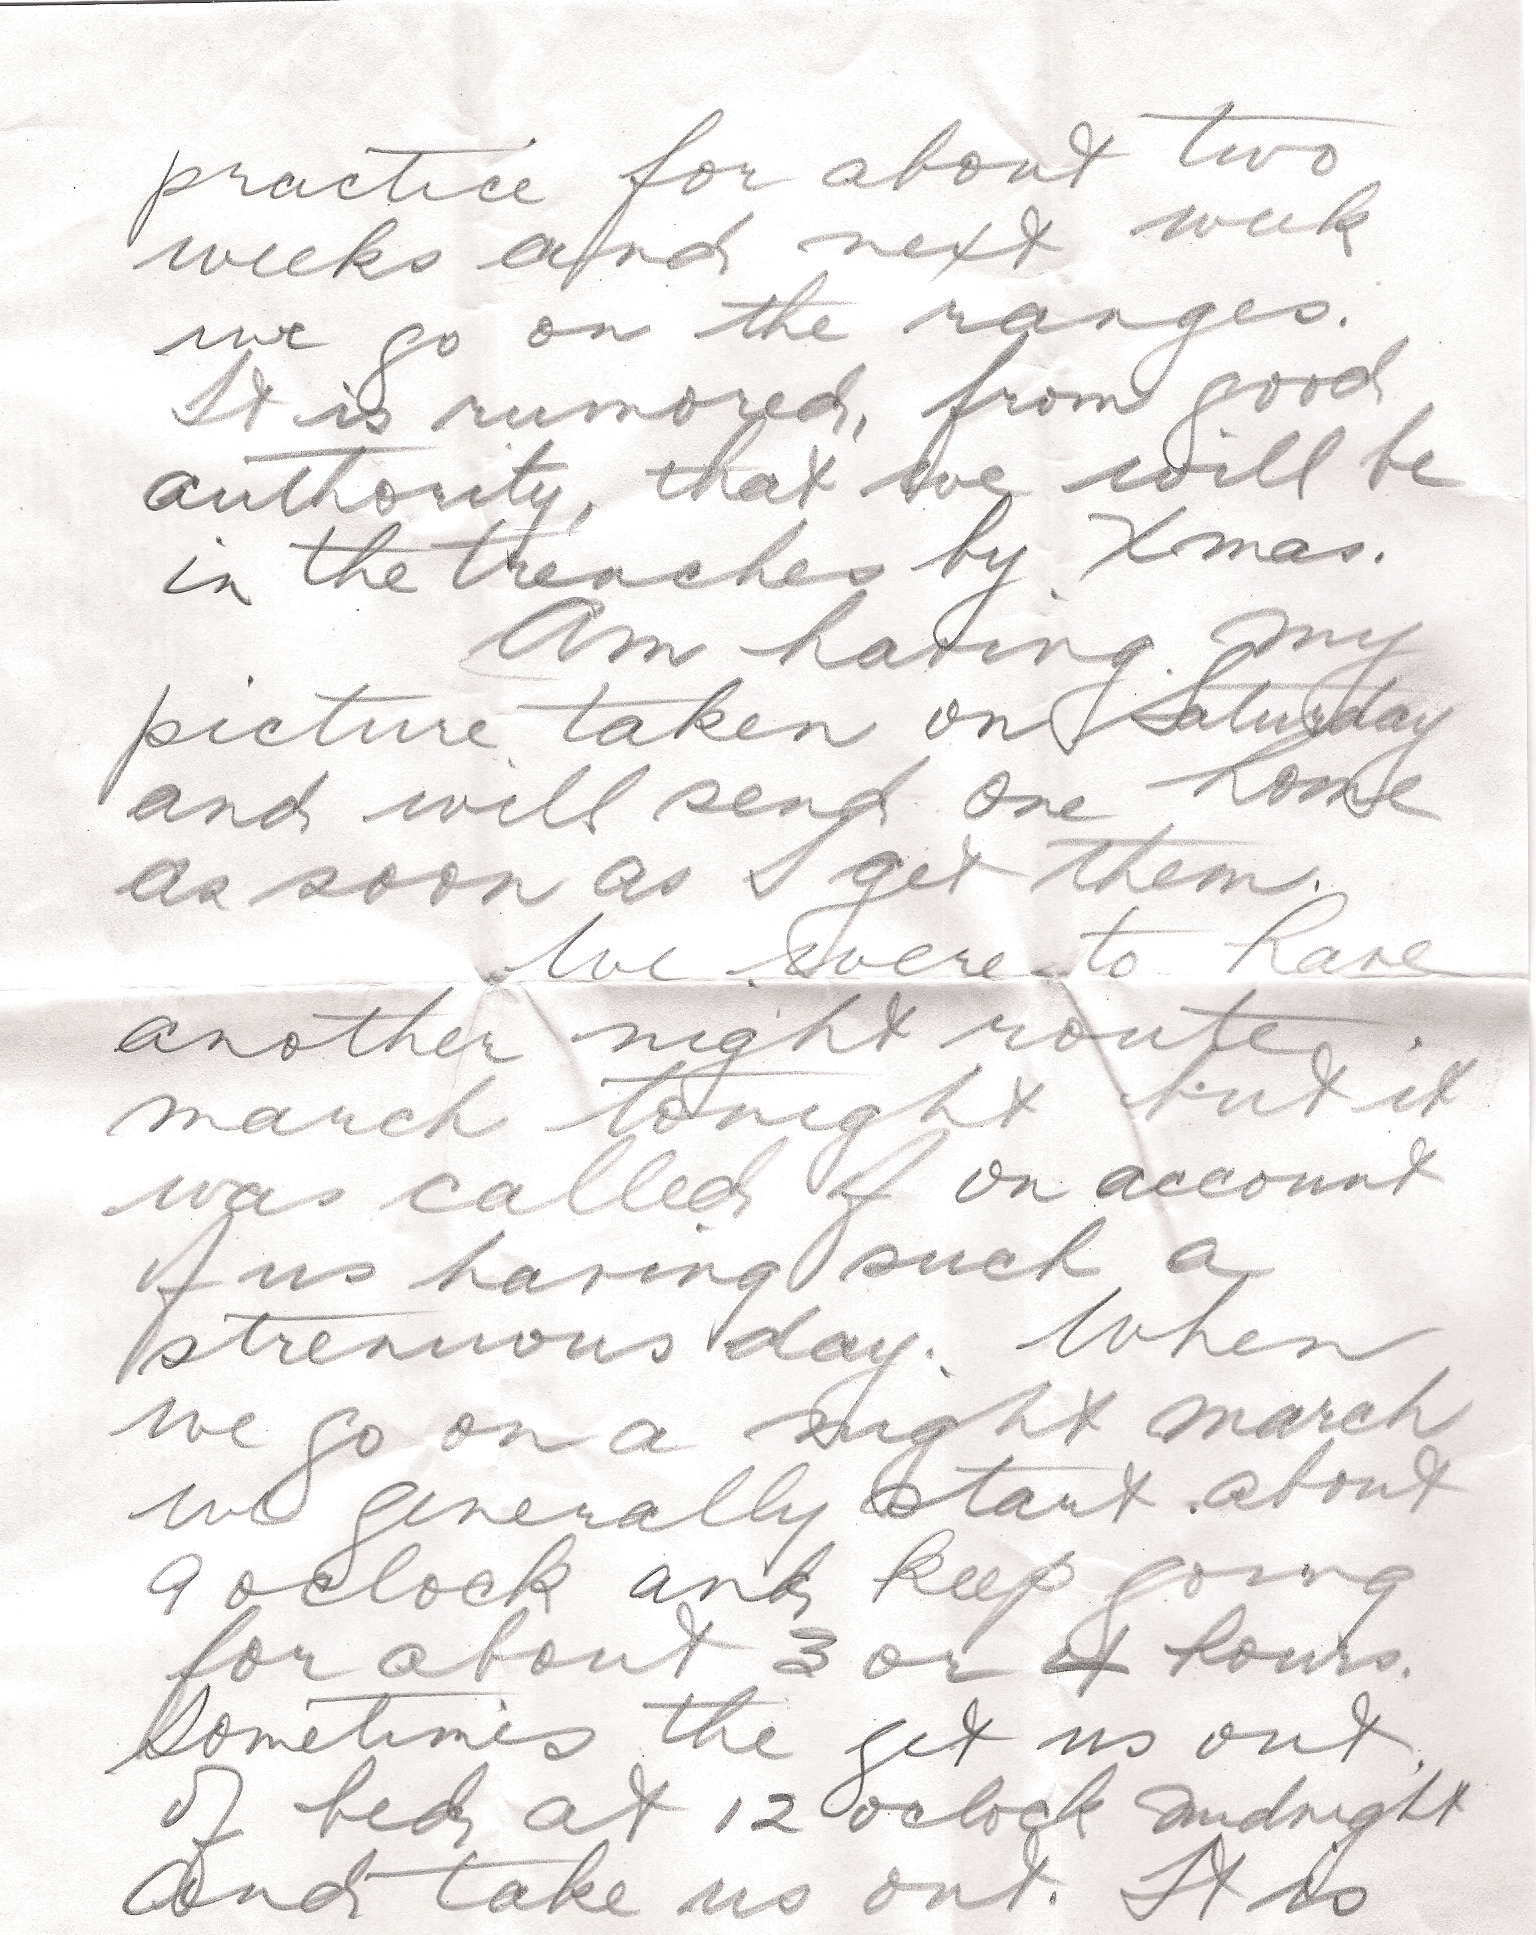 practice for about two
weeks and next week
we go on the ranges.
It is rumored, from good
authority, that we will be
in the trenches by Xmas.
Am having my
picture taken on Saturday
and will send one home
as soon as I get them.
We were to have
another night route
march tonight but it
was called of on account
of us having such a
strenuous day. When
we go on a night march
we generally start about
9 oclock and keep going
for about 3 or 4 hours.
Sometimes the get us out
of bed at 12 oclock midnight
and take us out. It is